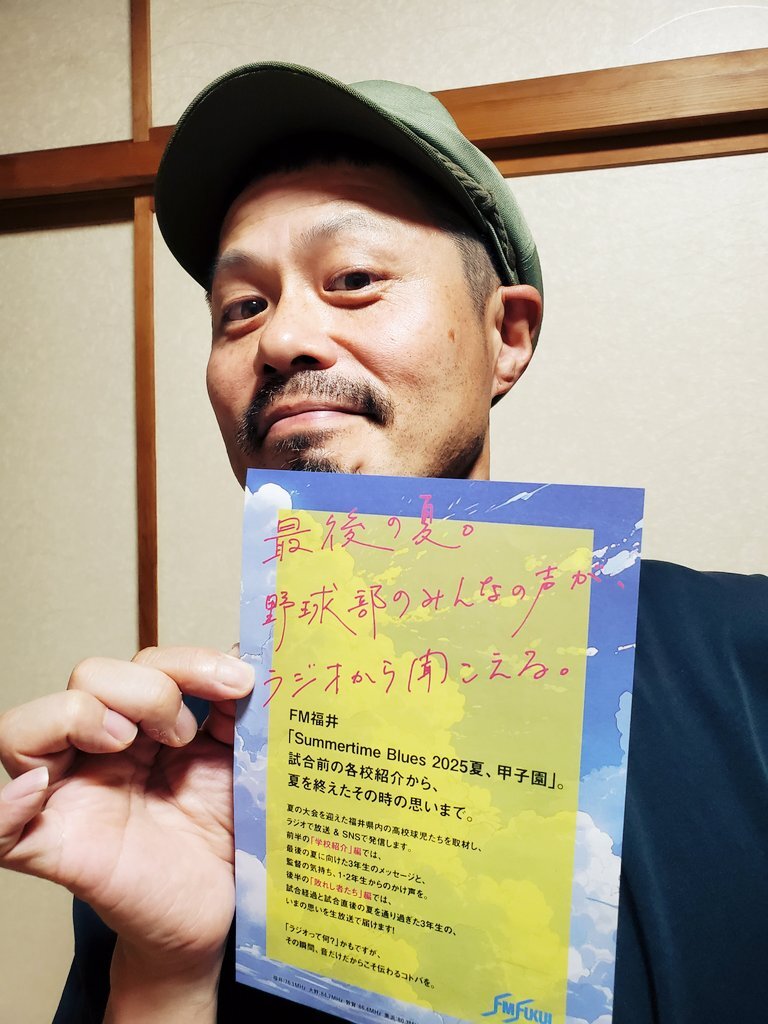 最後の夏。
野球部のみんなの声が、
ラジオから聞こえる。
FM福井
「Summertime Blues 2025夏、甲子園」。
試合前の各校紹介から、
夏を終えたその時の思いまで。
夏の大会を迎えた福井県内の高校球児たちを取材し、
ラジオで放送 & SNSで発信します。
前半の「学校紹介」編では、
最後の夏に向けた3年生のメッセージと、
監督の気持ち、1・2年生からのかけ声を。
後半の「敗れし者たち」編では、
試合経過と試合直後の夏を通り過ぎた3年生の、
いまの思いを生放送で届けます!
「ラジオって何?」かもですが、
その瞬間、音だけだからこそ伝わるコトバを。
福井:76.1MHz 大野:84.7MHz 敦賀:86.4MHz 美浜:80.
FM FUKUI